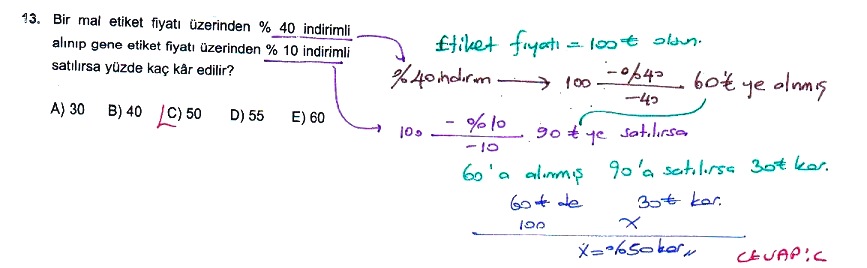 13. Bir mal etiket fiyatı üzerinden % 40 indirimli
alınıp gene etiket fiyatı üzerinden % 10 indirimli
satılırsa yüzde kaç kâr edilir?
A) 30 B) 40 C) 50 D) 55 E) 60
Etiket fiyatı = 100 ₺ olsun.
%40 indirim → 100 -%40 -40 60 ₺ ye alınmış
100 -%10 -10 90 ₺ ye satılırsa
60'a alınmış 90'a satılırsa 30₺ kar.
60₺ de 30₺ kar.
100 x
x = %50 kar //
CEVAP: C